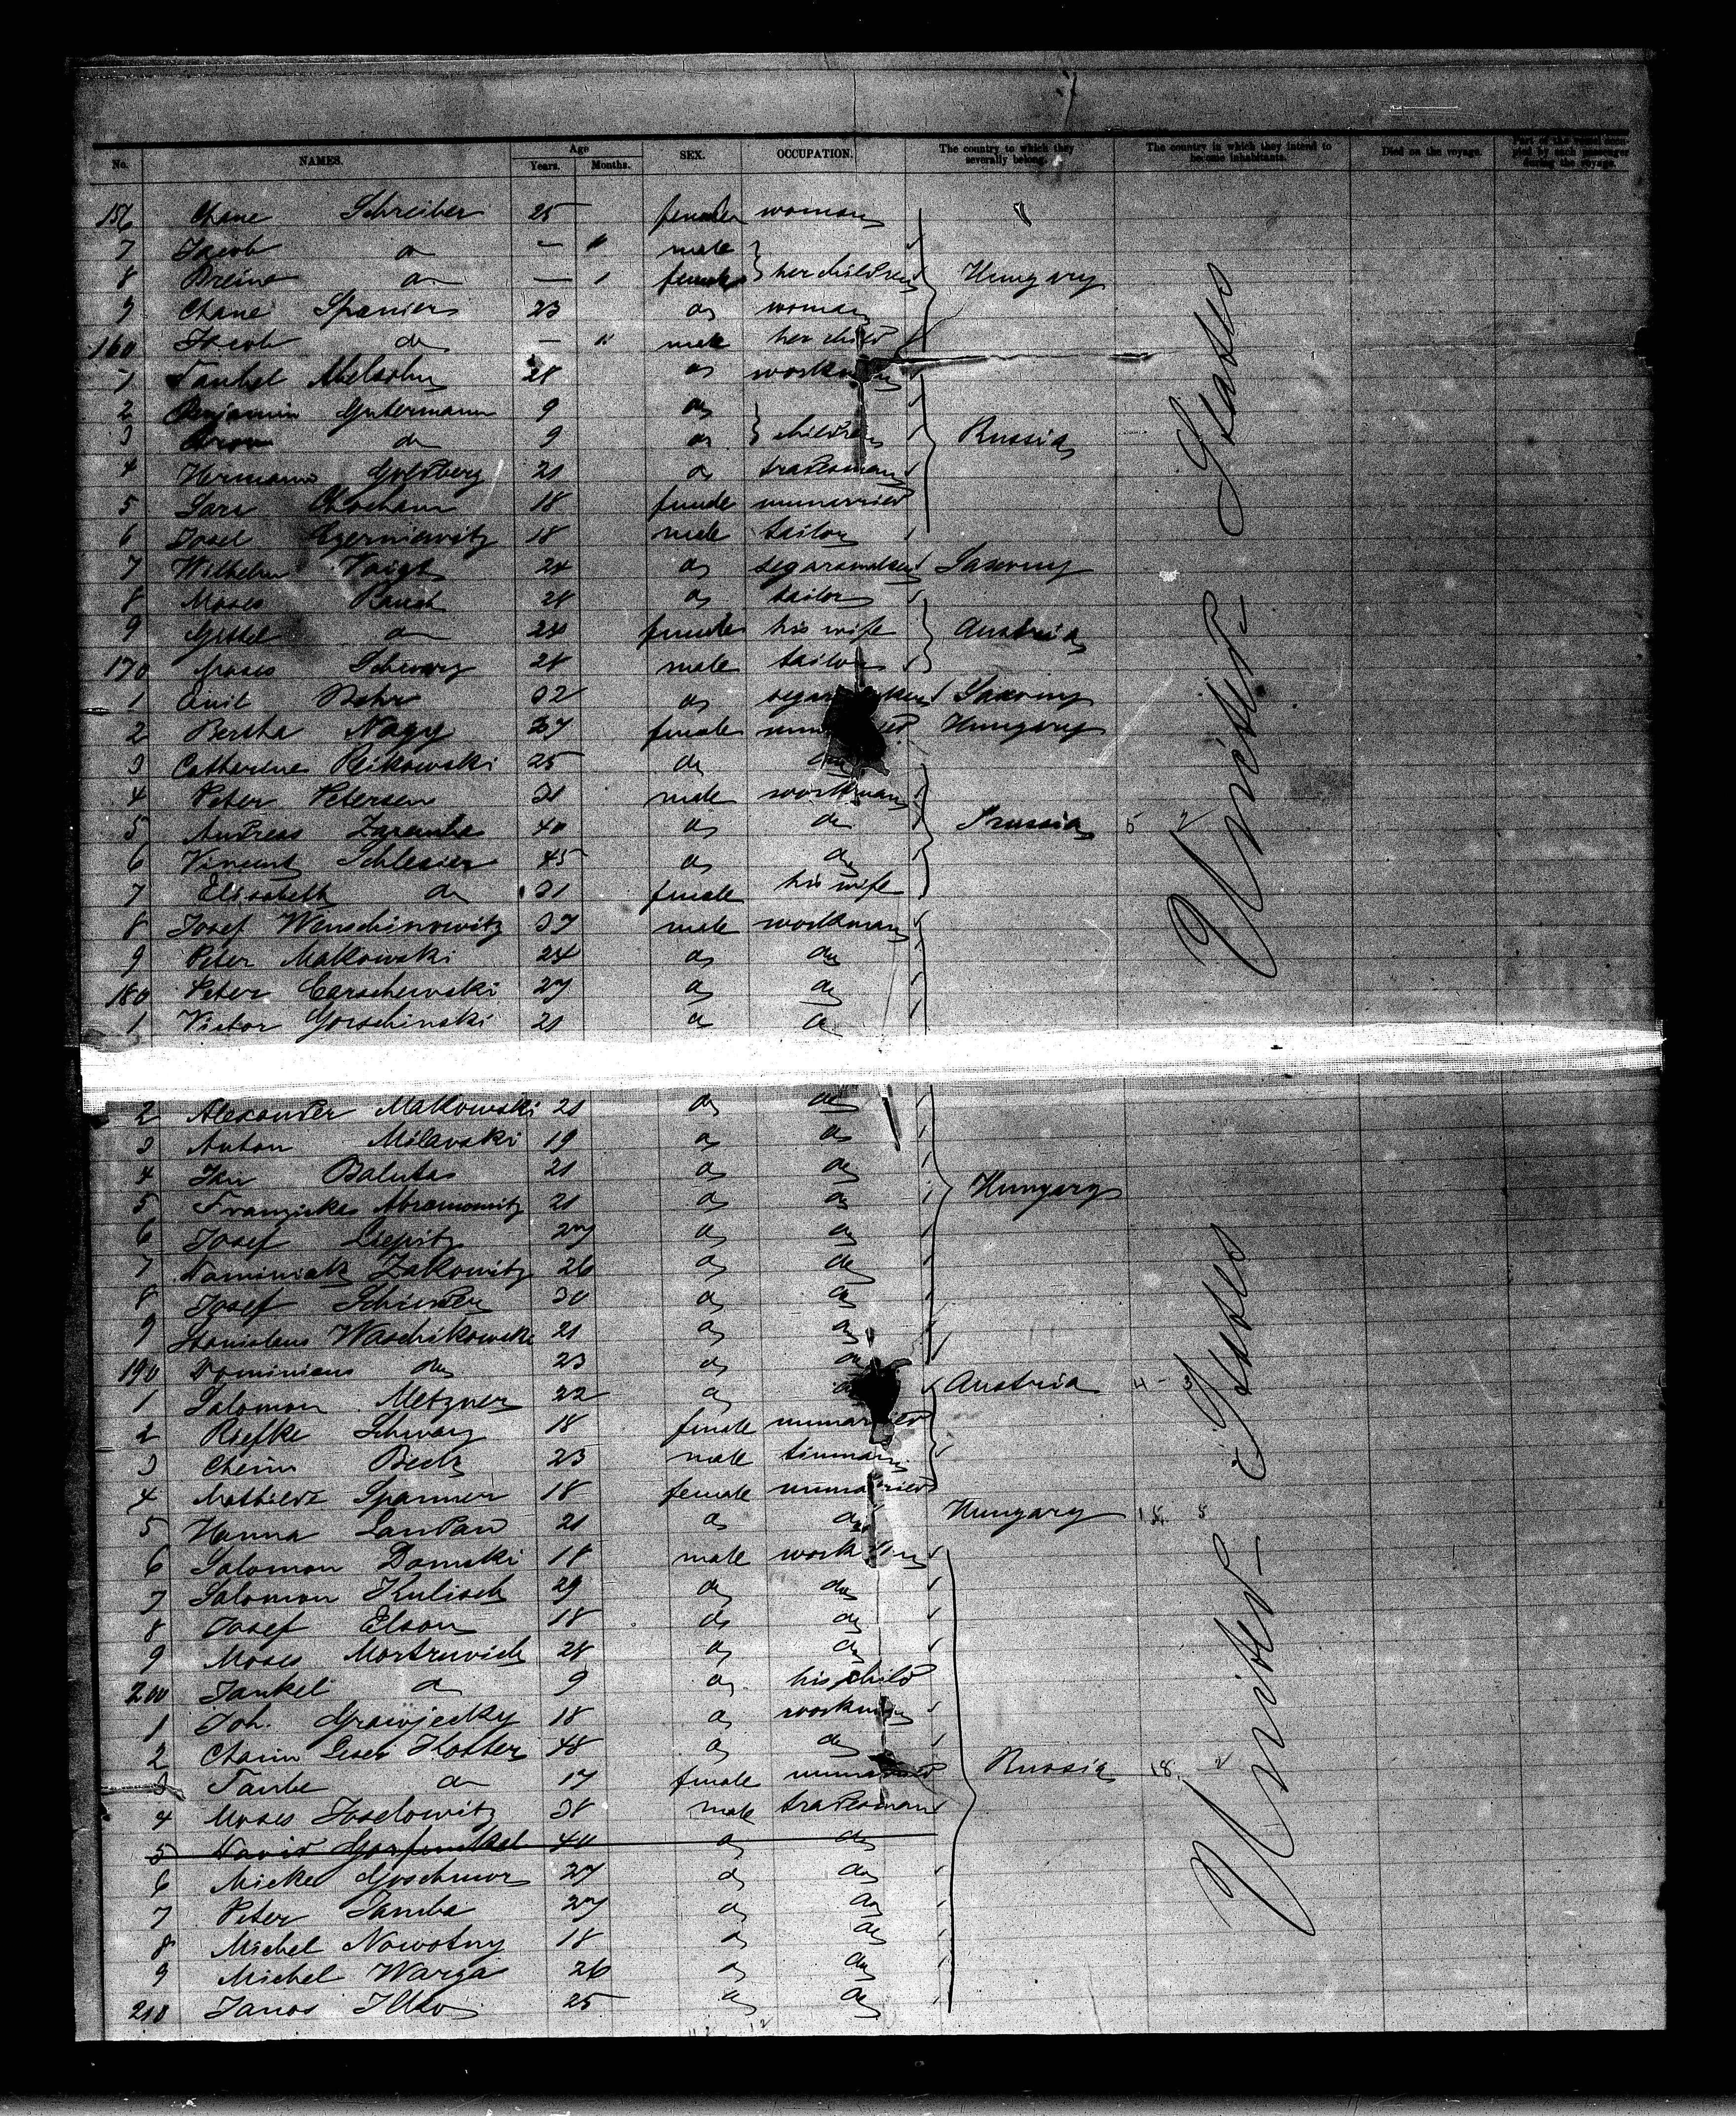 No. NAMES. Age Years. Months. SEX. OCCUPATION. The country to which they severally belong. The country in which they intend to become inhabitants. Died on the voyage. Part of the vessel occupied by each passenger during the voyage.
156 Chane Schreiber 25 female woman
7 Jacob do — 11 male
8 Breine do — 1 female her children Hungary
9 Chane Spanier 23 do woman
160 Jacob do — 11 male her child
1 Taubel Abelsohn 28 do workman
2 Benjamin Gutermann 9 do
3 Aron do 9 do children Russia
4 Hermann Goldberg 21 do tradesman
5 Sara Chocham 18 female unmarried
6 Josel Czerniewitz 18 male tailor
7 Wilhelm Voigt 24 do segarsmaker Saxony
8 Moses Rauch 28 do tailor
9 Gittel do 24 female his wife Austria
170 Moses Schwarz 28 male tailor
1 Emil Behr 32 do Saxony
2 Bertha Nagy 37 female unmarried Hungary
3 Catherine Reikowski 25 do do
4 Peter Petersen 31 male workman
5 Andreas Zaremba 40 do do Prussia 5 2
6 Vincent Schlesier 45 do do
7 Elisabeth do 31 female his wife
8 Josef Wenschinowitz 37 male workman
9 Peter Makowski 24 do do
180 Peter Carschewski 27 do do
1 Victor Gorschinski 21 do do
2 Alexander Makowski 21 do do
3 Anton Milewski 19 do do
4 Jan Baluta 21 do do
5 Franziskas Abramowitz 21 do do Hungary
6 Josef 27 do do
7 Dominiack Zakowitz 26 do do
8 Josef Schinder 30 do do
9 Stanislaus Waschikowski 21 do do
190 Dominicus do 23 do do
1 Salomon Metzner 22 do do Austria 4 - 3
2 Riefke Schwarz 18 female unmarried
3 Cheim Beck 23 male tinman
4 Mathilde Spanner 18 female unmarried
5 Hanna Landau 21 do do Hungary 15. 5
6 Salomon Domski 18 male workman
7 Salomon Kulisch 29 do do
8 Josef Elson 18 do do
9 Moses Mortruvich 28 do do
200 Jankel do 9 do his child
1 Joh. Grawjecky 18 do workman
2 Chaim Leser Kotter 48 do do
3 Taube do 17 female unmarried Russia 18. 2
4 Moses Joselowitz 38 male tradesman
5 David Garfunkel 40 do do
6 Micke Goschmor 27 do do
7 Peter Samba 27 do do
8 Michel Nowotny 18 do do
9 Michel Warga 26 do do
210 Janos Ilko 25 do do
United States
United States